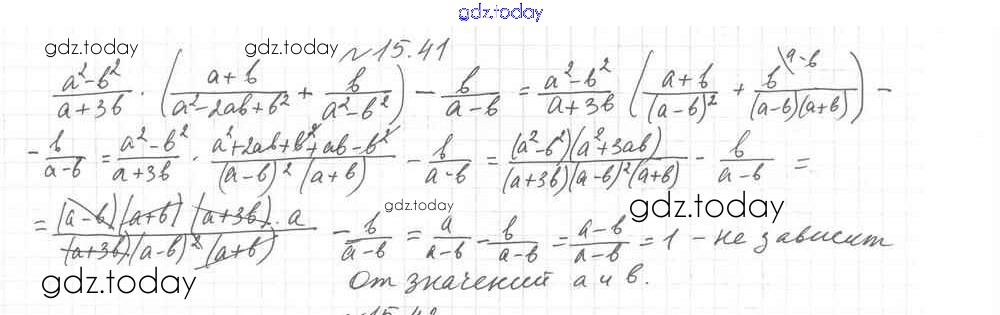 gdz.today
gdz.today gdz.today №15.41
(a²-b²)/(a+3b) · ((a+b)/(a²-2ab+b²) + b/(a²-b²)) - b/(a-b) = (a²-b²)/(a+3b) ((a+b)/(a-b)² + b\a-b/((a-b)(a+b))) -
- b/(a-b) = (a²-b²)/(a+3b) · (a²+2ab+b²+ab-b²)/((a-b)²(a+b)) - b/(a-b) = ((a²-b²)(a²+3ab))/((a+3b)(a-b)²(a+b)) - b/(a-b) =
gdz.today gdz.today
= ((a-b)(a+b)(a+3b)·a)/((a+3b)(a-b)²(a+b)) - b/(a-b) = a/(a-b) - b/(a-b) = (a-b)/(a-b) = 1 - не зависит
gdz.today от значений a и b.